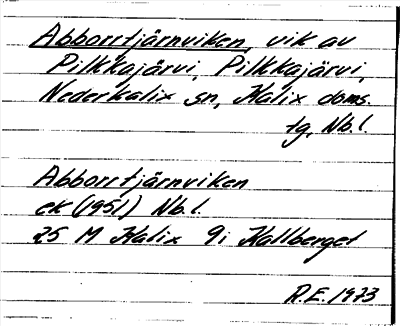 Abborrtjärnviken, vik av
Pilkkajärvi, Pilkkajärvi,
Nederkalix sn, Kalix doms.
tg, Nb.l.
Abborrtjärnviken
ek (1951) Nb.l.
25 M Kalix 9i Kallberget
R.E. 1973